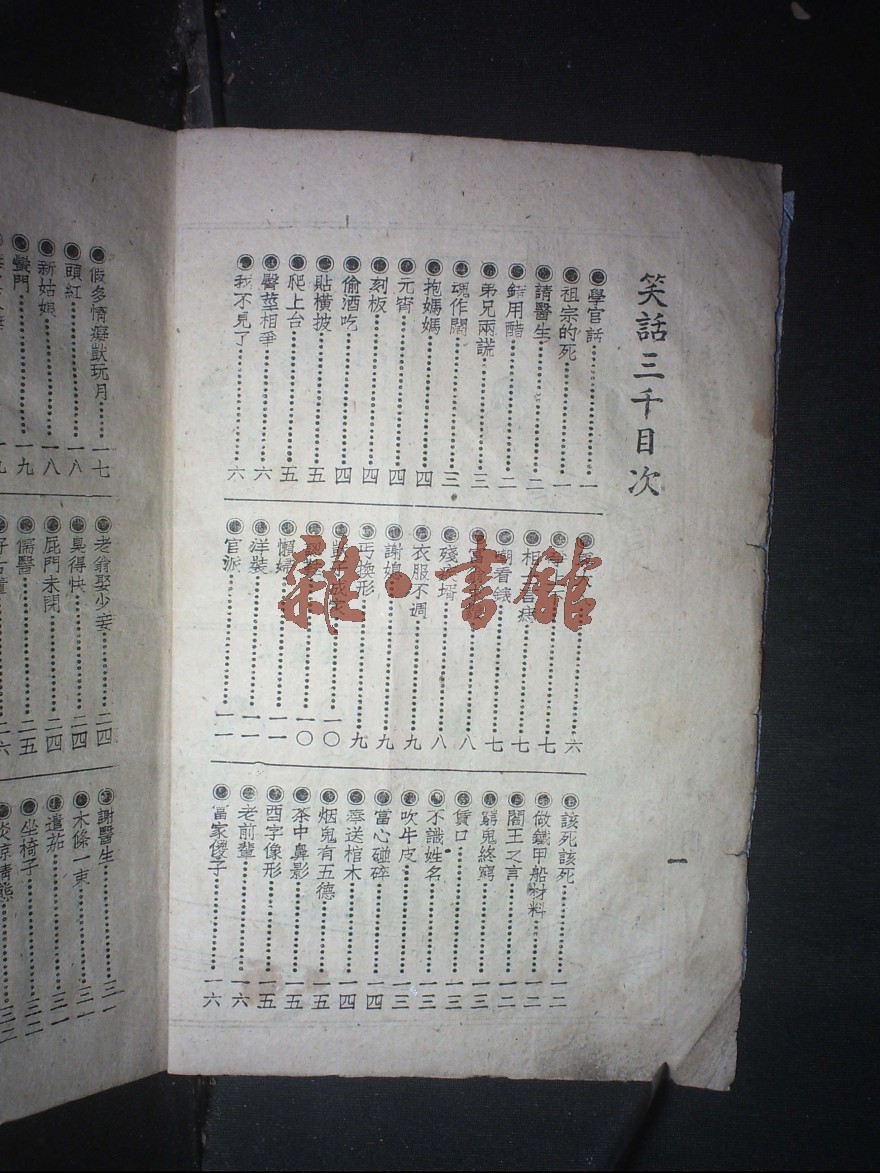 笑話三千目次
學官話 一
祖宗的死 一
請醫生 二
錯用醋 二
弟兄兩謊 三
魂作鬧 三
抱媽媽 四
元宵 四
刻板 四
偷酒吃 四
貼橫披 五
爬上台 五
臀莖相爭 六
我不見了 六
六
七
相 痔 七
嘲看錢 七
八
殘 壻 八
衣服不調 九
謝媳 九
丐換形 九
一〇
一〇
懶婦 一一
洋裝 一一
官派 一一
該死該死 一二
做鐵甲船材料 一二
閻王之言 一二
窮鬼終窮 一三
貨口 一三
不識姓名 一三
吹牛皮 一三
當心碰碎 一四
奉送棺木 一四
烟鬼有五德 一五
茶中鼻影 一五
酉字像形 一五
老前輩 一六
富家傻子 一六
一
假多情癡獃玩月 一七
頭紅 一八
新姑娘 一八
門 一九
老翁娶少妾 二四
臭得快 二四
屁門未閉 二四
儒醫 二五
二六
謝醫生 三一
木條一束 三一
遺茄 三一
坐椅子 三二
炎涼情態 三二
雜·書館